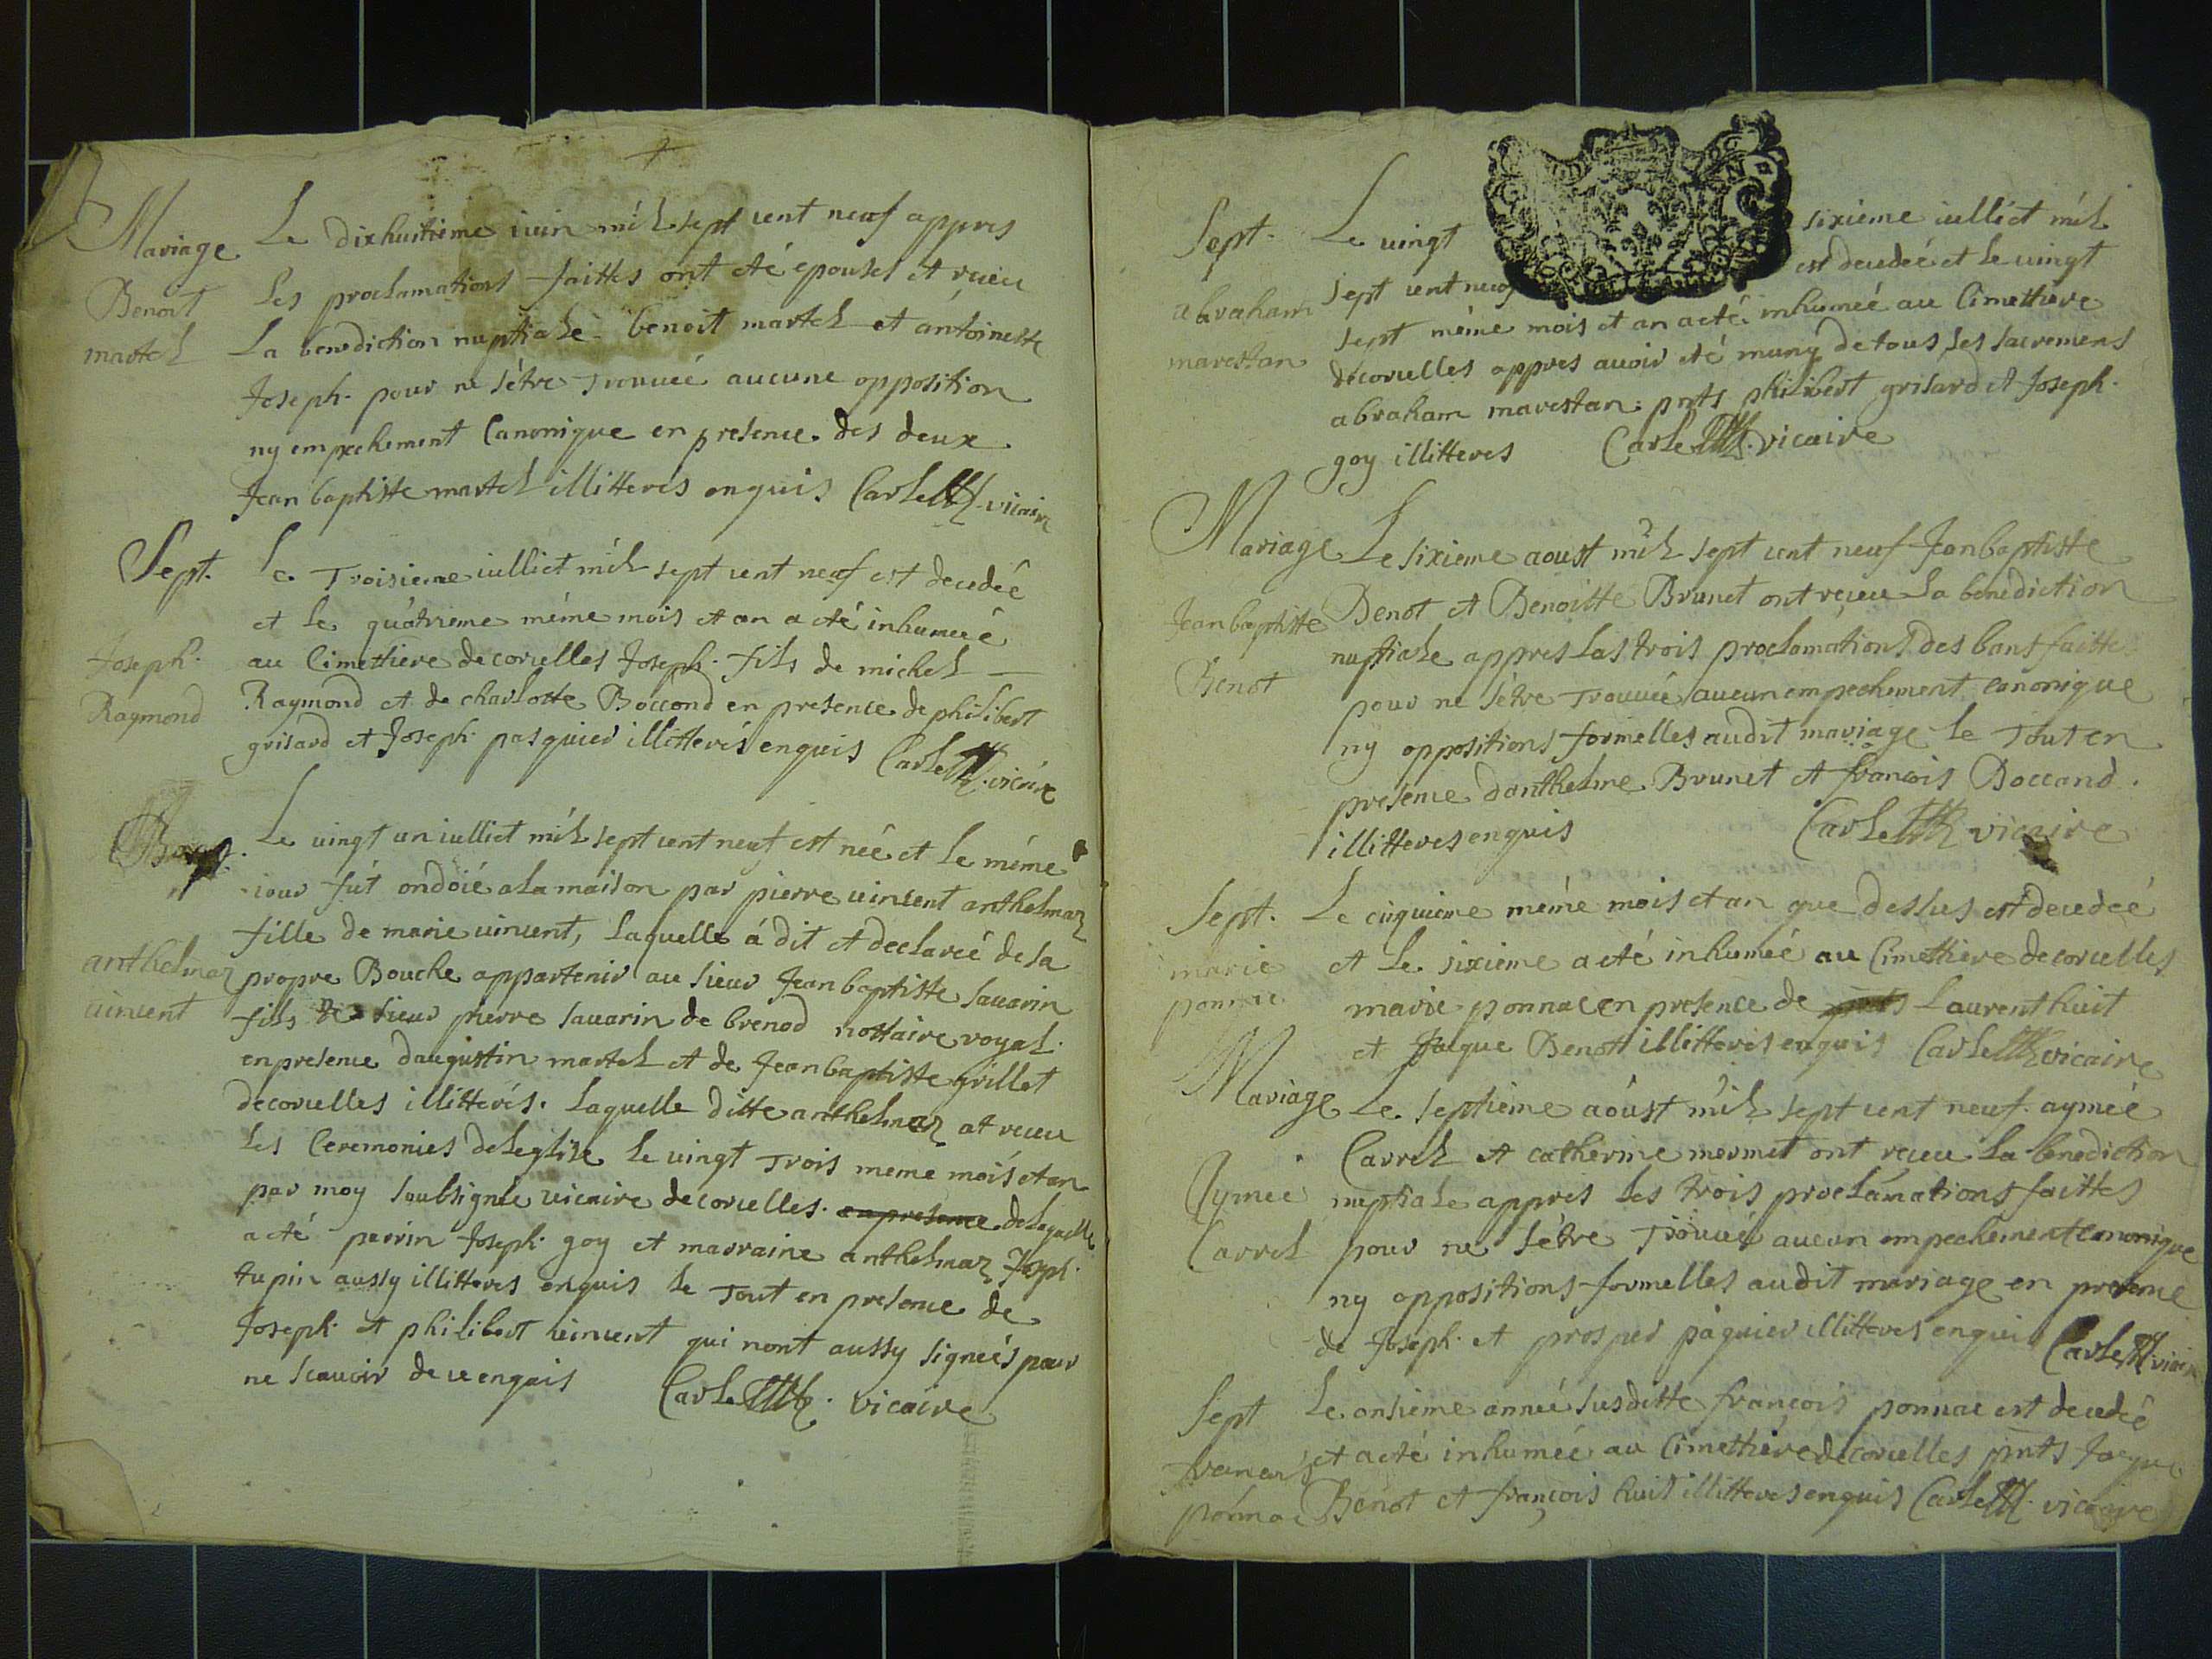 Mariage
Benoit
martel
Le dixhuitieme iuin mil sept cent neuf appres
les proclamations faittes ont eté epousés et receu
La benediction nuptiale benoit martel et antoinette
Joseph pour ne s'etre trouueé aucune opposition
ny empechement Canonique en presence des deux
Jean baptiste martel illitterés enquis Carle vicaire
Sept.
Joseph
Raymond
Le Troisieme iulliet mil sept cent neuf est decedeé
et le quatrieme méme mois et an a eté inhumeé
au Cimettiere de corcelles Joseph fils de michel
Raymond et de charlotte Boccond en presence de philibert
grisard et Joseph pasquier illitterés enquis Carle vicaire
anthelmaz
uincent
Le uingt un iulliet mil sept cent neuf est neé et le méme
iour fut ondoié a la maison par pierre uincent anthelmaz
fille de marie uincent, laquelle á dit et declareé de sa
propre Bouche appartenir au sieur Jean baptiste sauarin
fils De sieur pierre sauarin de brenod nottaire royal
en presence d'augustin martel et de Jean baptiste grillet
de corcelles illitterés. laquelle ditte anthelmaz at receu
les Ceremonies de leglise le uingt trois meme mois et an
par moy soubsignée vicaire de corcelles. en presence de laquelle
a eté parrin Joseph goy et marraine anthelmaz Joseph
tupin aussy illitteres enquis le Tout en presence de
Joseph et philibert uincent qui nont aussy signeés pour
ne scauoir de ce enquis Carle vicaire
Sept.
abraham
marestan
Le uingt sixieme iulliet mil
sept cent neuf est decedeé et le uingt
sept méme mois et an a eté inhumeé au Cimettiere
de corcelles appres auoir eté muny de tous les sacremens
abraham marestan pnts philibert grisard et Joseph
goy illitteres Carle vicaire
Mariage
Jean baptiste
Benot
Le sixieme aoust mil sept cent neuf Jean baptiste
Benot et Benoitte Brunet ont receu la benediction
nuptiale appres las trois proclamations des bans faitte
pour ne s'etre trouueé aucun empechement canonique
ny oppositions formelles audit mariage le Tout en
presence danthelme Brunet et francois Boccand
illitteres enquis Carle vicaire
Sept.
marie
ponnac
Le cinquieme méme mois et an que dessus est decedeé
et le sixieme a eté inhumeé au Cimettiere de corcelles
marie ponnac en presence de pnts Laurent huit
et Jaque Benot illitteres enquis Carle vicaire
Mariage
Aymee
Carrel
Le septieme aoust mil sept cent neuf aymeé
Carrel et catherine mermet ont receu la benediction
nuptiale appres les trois proclamations faittes
pour ne s'etre Trouué aucun empechement canonique
ny oppositions formelles audit mariage en presence
de Joseph et prosper paquier illitteres enquis Carle vicaire
Sept
francois
ponnac
Le onsieme anneé susditte françois ponnac est decedeé
et a eté inhumeé au Cimettiere de corcelles pnts Jaque
Benot et françois huit illitteres enquis Carle vicaire